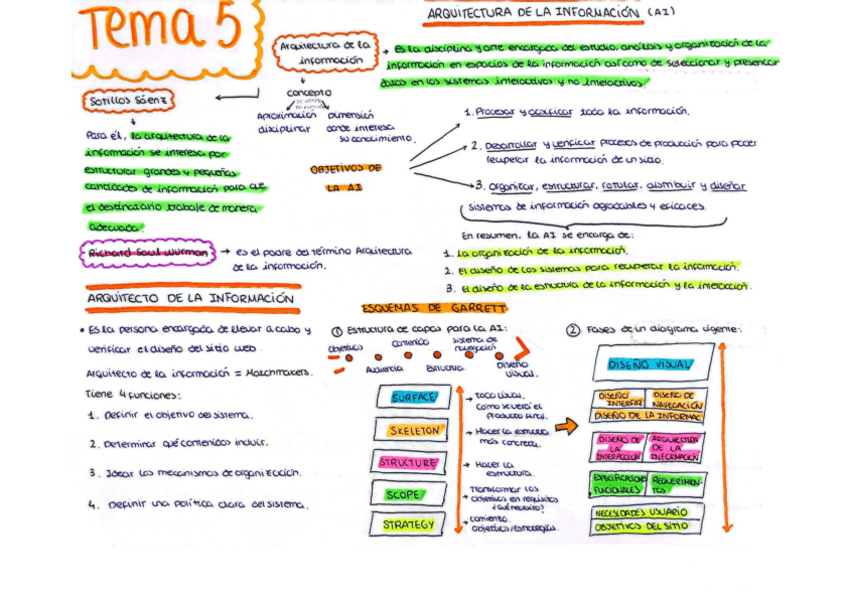 Tema 5
ARQUITECTURA DE LA INFORMACIÓN (AI)
Arquitectura de la
información
→ es la disciplina y arte encargada del estudio, análisis y organización de la
información en espacios de la información así como de seleccionar y presentar
datos en los sistemas interactivos y no interactivos.
concepto
Aproximación
disciplinar
dimensión
donde interesa
su conocimiento.
Sotillos Sáenz
Para él, la arquitectura de la
información se interesa por
estructurar grandes y pequeñas
cantidades de información para que
el destinatario trabaje de manera
adecuada.
OBJETIVOS DE
LA AI
1. Procesar y codificar toda la información.
2. Desarrollar y verificar procesos de producción para poder
recuperar la información de un sitio.
3. organizar, estructurar, rotular, distribuir y diseñar
sistemas de información agradables y eficaces.
En resumen, la AI se encarga de:
1. La organización de la información.
2. El diseño de los sistemas para recuperar la información.
3. El diseño de la estructura de la información y la interacción.
Richard Saul Wurman → es el padre del término Arquitectura
de la información.
ARQUITECTO DE LA INFORMACIÓN
• Es la persona encargada de llevar a cabo y
verificar el diseño del sitio web.
Arquitecto de la información = Matchmakers.
Tiene 4 funciones:
1. Definir el objetivo del sistema.
2. Determinar qué contenidos incluir.
3. Idear los mecanismos de organización.
4. Definir una política clara del sistema.
ESQUEMAS DE GARRETT
① Estructura de capas para la AI:
Objetivos
Contenido
sistema de
navegación
Audiencia
Estructura
Diseño
visual.
SURFACE
→ todo visual,
como se verá el
producto final.
SKELETON
→ Hacer la estructura
más concreta.
STRUCTURE
→ Hacer la
estructura.
SCOPE
Transformar los
→ objetivos en requisitos
¿qué necesito?
STRATEGY
→ comienzo.
objetivos/estrategias.
② Fases de un diagrama vigente:
DISEÑO VISUAL
DISEÑO
INTERFAZ
DISEÑO DE
NAVEGACIÓN
DISEÑO DE LA INFORMAC
DISEÑO DE
LA
INTERACCIÓN
ARQUITECTURA
DE LA
INFORMACIÓN
ESPECIFICACIONES
FUNCIONALES
REQUERIMIEN-
TOS
NECESIDADES USUARIO
OBJETIVOS DEL SITIO